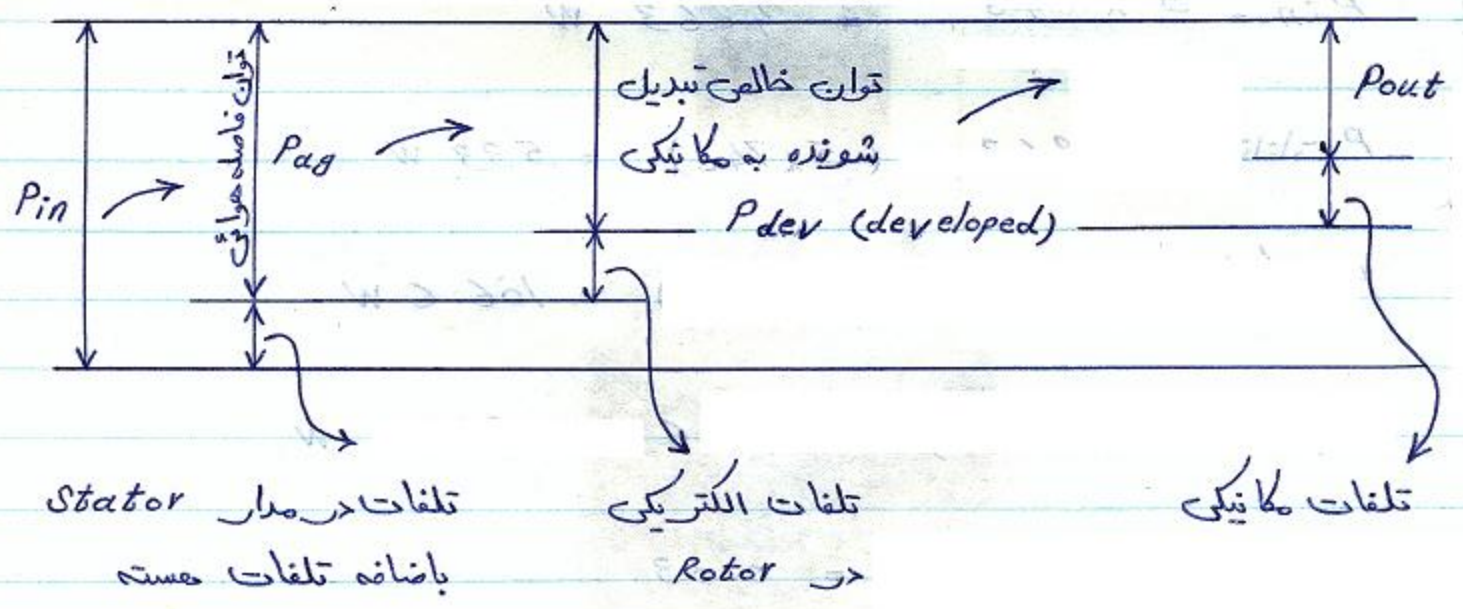 Pin
توان فاصله هوائی
Pag
توان خالص تبدیل
شونده به مکانیکی
Pdev (developed)
Pout
تلفات در مدار Stator
باضافه تلفات هسته
تلفات الکتریکی
در Rotor
تلفات مکانیکی